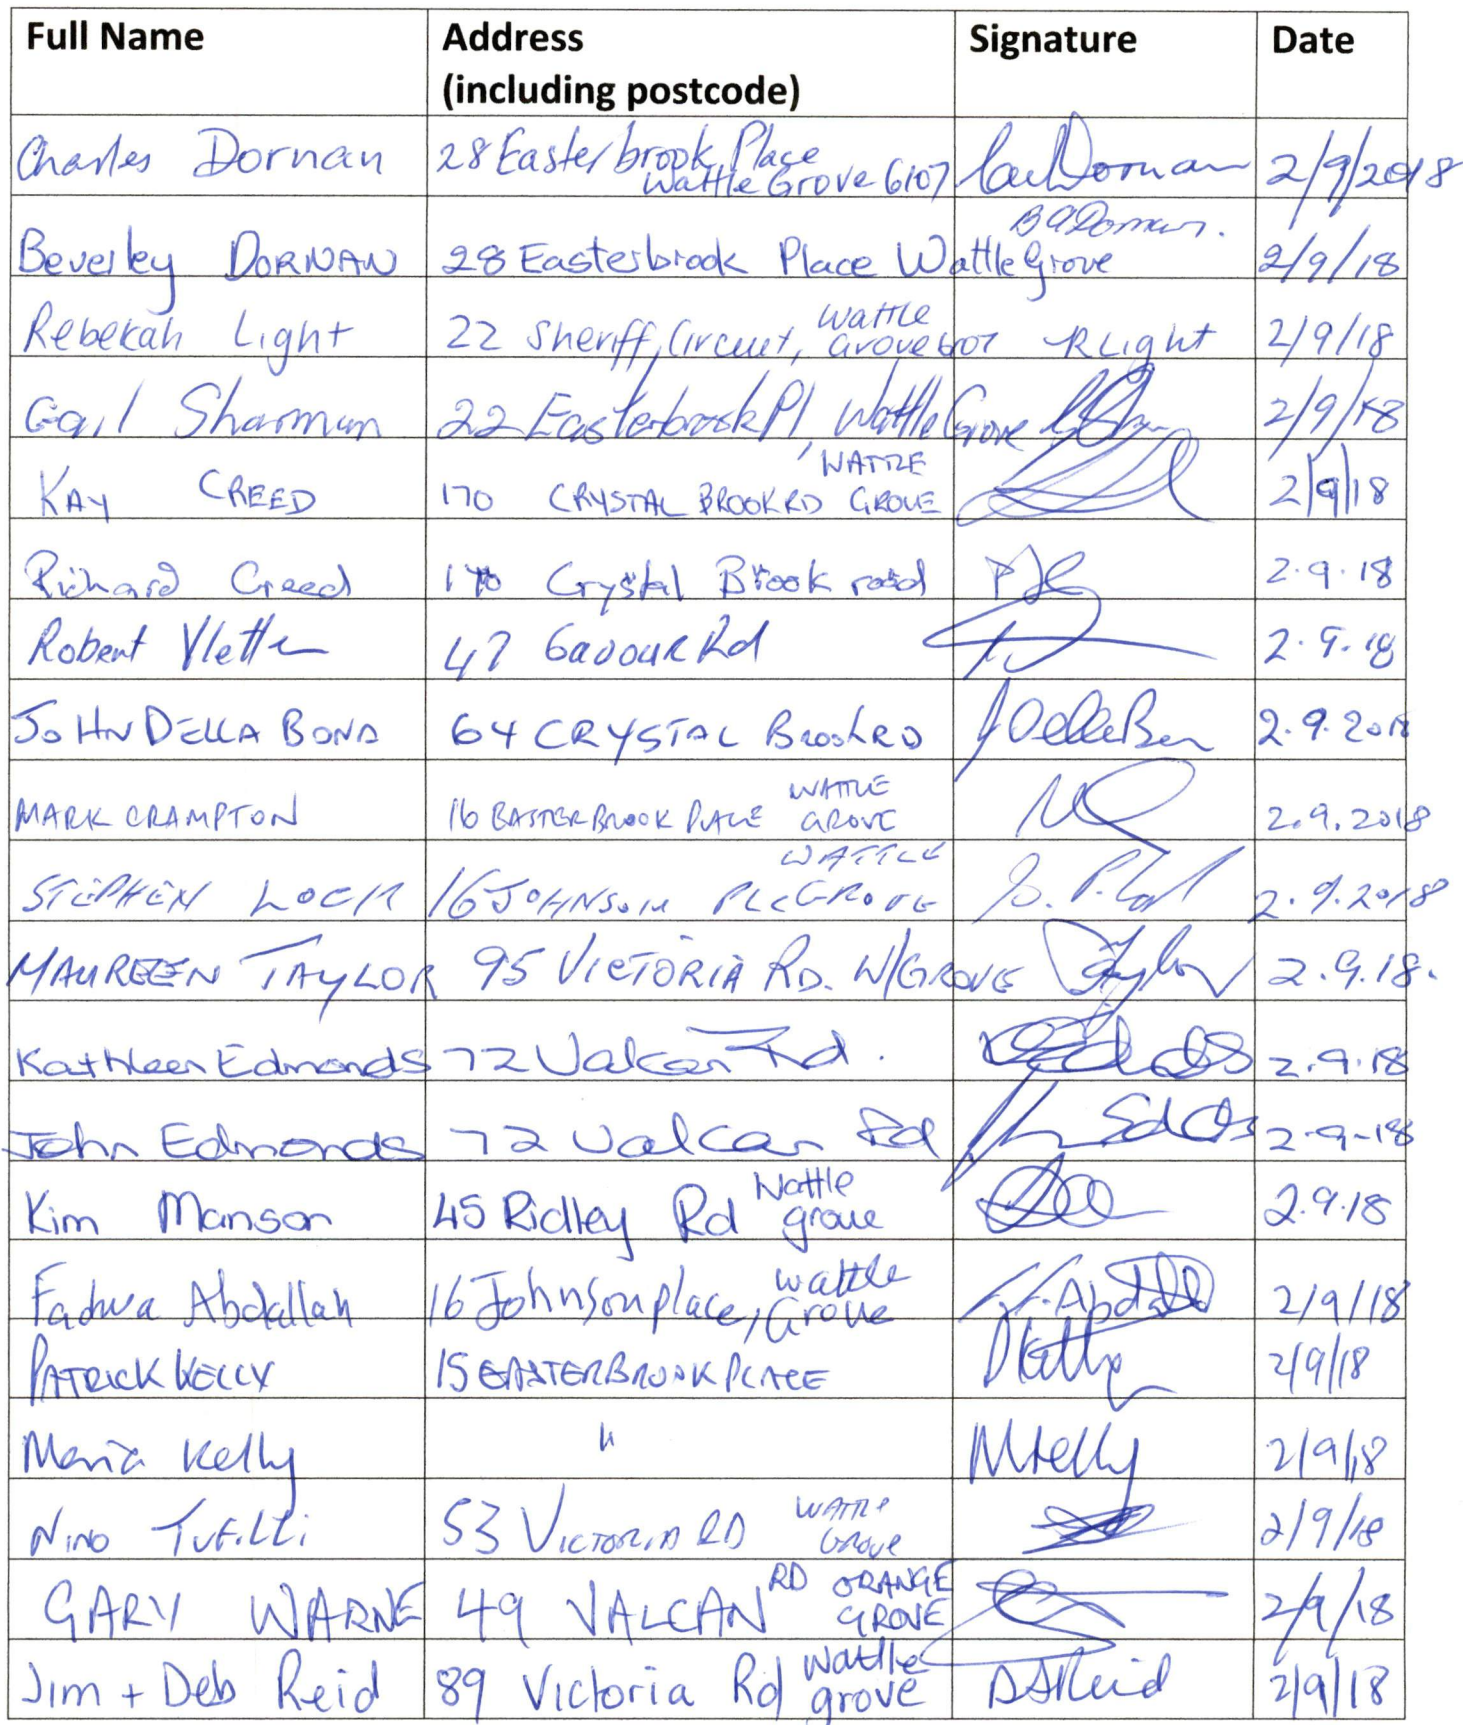 Full Name Address Signature Date
(including postcode)
Charles Dornan 28 Easterbrook Place Wattle Grove 6107 2/9/2018
Beverley DORNAN 28 Easterbrook Place Wattle Grove BADornan. 2/9/18
Rebekah Light 22 Sheriff Circuit, Wattle Grove 6107 RLight 2/9/18
Gail Sharman 22 Easterbrook Pl, Wattle Grove 2/9/18
KAY CREED 170 CRYSTAL BROOK RD WATTLE GROVE 2/9/18
Richard Creed 170 Crystal Brook road 2.9.18
Robert 47 Gavour Rd 2.9.18
JOHN DELLA BONA 64 CRYSTAL Brook RD 2.9.2018
MARK CRAMPTON 16 EASTERBROOK PLACE WATTLE GROVE 2.9.2018
STEPHEN LOCK 16 JOHNSON PLC WATTLE GROVE 2.9.2018
MAUREEN TAYLOR 95 VICTORIA RD. W/GROVE Taylor 2.9.18.
Kathleen Edmonds 72 Valcan Rd. 2.9.18
John Edmonds 72 Valcan Rd 2-9-18
Kim Manson 45 Ridley Rd Wattle grove 2.9.18
Fadwa Abdallah 16 Johnson place, Wattle Grove 2/9/18
PATRICK KELLY 15 EASTERBROOK PLACE 2/9/18
Maria Kelly " MKelly 2/9/18
NINO 53 VICTORIA RD WATTLE Grove 2/9/18
GARY WARNE 49 VALCAN RD ORANGE GROVE 2/9/18
Jim + Deb Reid 89 Victoria Rd Wattle grove DJReid 2/9/18